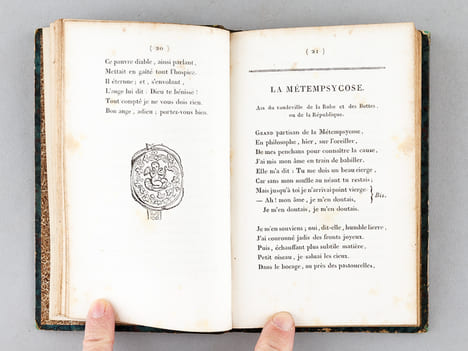 ( 20 )
Ce pauvre diable, ainsi parlant,
Mettait en gaîté tout l'hospice.
Il éternue ; et, s'envolant,
L'ange lui dit : Dieu te bénisse !
Tout compté je ne vous dois rien.
Bon ange, adieu ; portez-vous bien.
( 21 )
LA MÉTEMPSYCOSE.
Air du vaudeville de la Robe et des Bottes,
ou de la République.
GRAND partisan de la Métempsycose,
En philosophe, hier, sur l'oreiller,
De mes penchans pour connaître la cause,
J'ai mis mon âme en train de babiller.
Elle m'a dit : Tu me dois un beau cierge,
Car sans mon souffle au néant tu restais ;
Mais jusqu'à toi je n'arrivai point vierge.
— Ah ! mon âme, je m'en doutais,
Je m'en doutais, je m'en doutais.
Bis.
Je m'en souviens ; oui, dit-elle, humble lierre,
J'ai couronné jadis des fronts joyeux.
Puis, échauffant plus subtile matière,
Petit oiseau, je saluai les cieux.
Dans le bocage, au près des pastourelles,